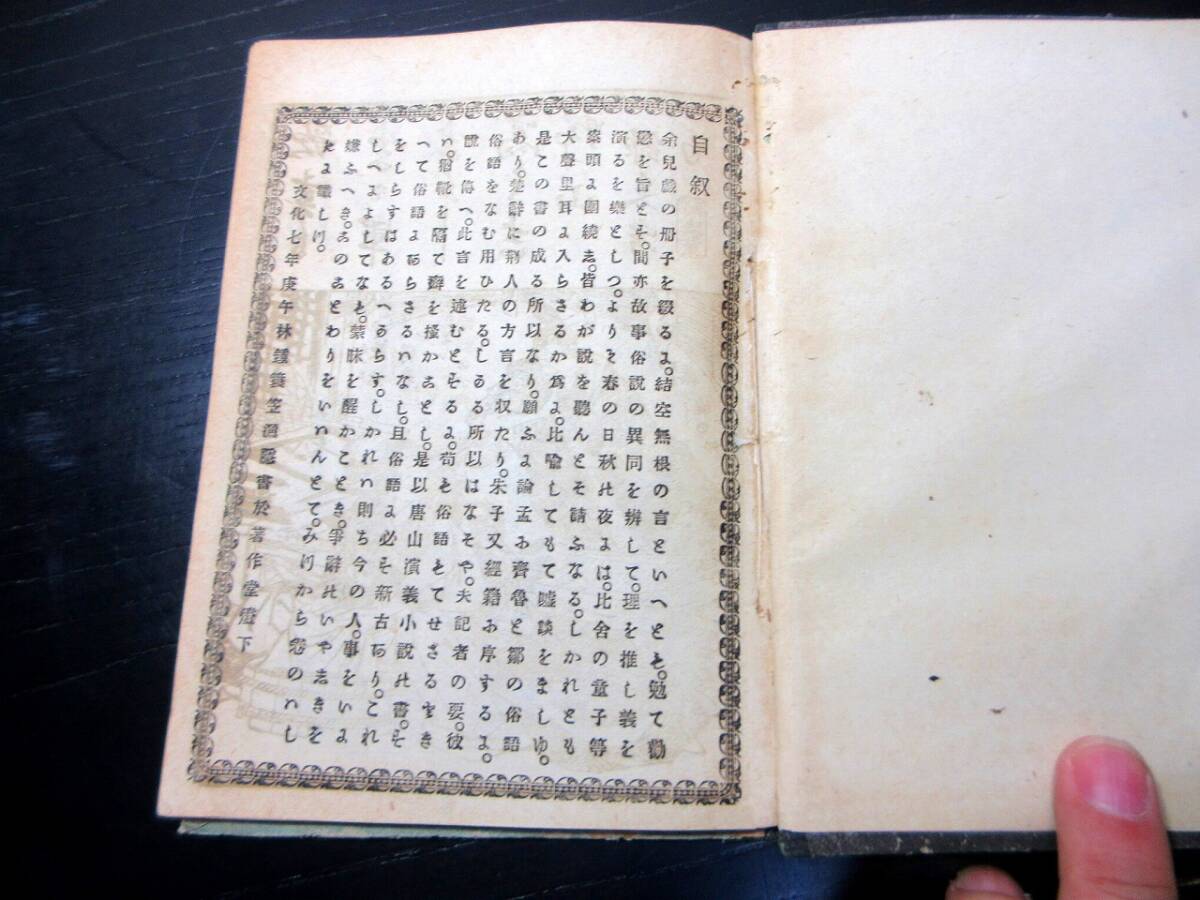 自叙
余兒戯の册子を綴るに。結空無根の言といへとも。勉て勸
懲を旨とす。間亦故事俗説の異同を辨して。理を推し義を
演るを樂としつ。よりて春の日秋の夜には。比舍の童子等
案頭に圍繞し。皆わが説を聽んとそ請ふなる。しかれとも
大聲里耳に入らさるか爲に。比喩してもて嘘談をましゆ。
是この書の成る所以なり。願ふに論孟に齊魯と鄒の俗語
あり。楚辭に荊人の方言を収たり。朱子又經籍に序するに。
俗語をなむ用ひたる。しある所以はなそや。夫記者の要。彼
説を傳へ。此言を述むとするに。苟も俗語もてせさるとき
ハ。靴を隔て癬を掻かことし。是以唐山演義小説の書。す
へて俗語にあらさるハなし。且俗語に必す新古あり。これ
をしらすはあるへからす。しかれハ則ち今の人。事をいに
しへによしてなも。蒙昧を醒かことき。爭辭のいやしきを
嫌ふへき。このことわりをいハんとて。みつから巻のハし
に識しつ。
文化七年庚午林鐘簑笠漁隱書於著作堂燈下